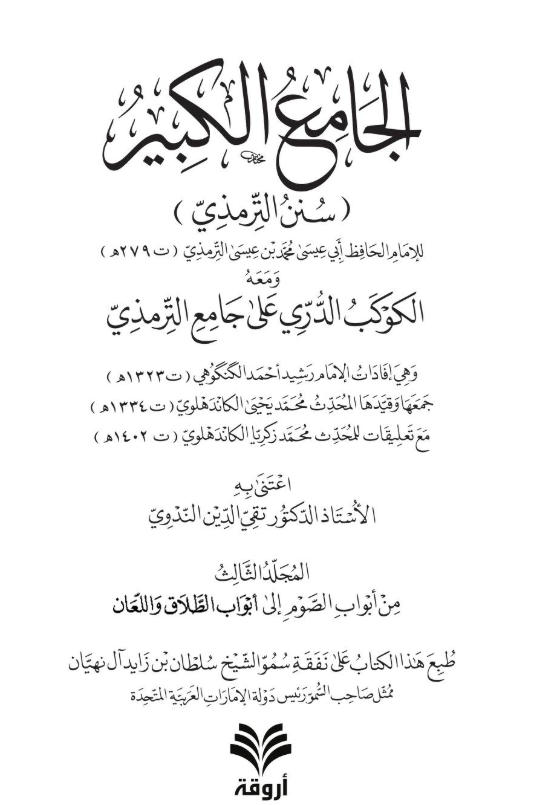 الجَامِعُ الكَبِيرُ
( سُنَنُ التِّرمذيّ )
للإمَامِ الحَافِظ أَبِي عِيسَىٰ مُحَمَّد بْن عِيسَىٰ التِّرمذِيّ ( ت ٢٧٩ﻫ )
وَمَعَهُ
الكَوكَبُ الدُّرِّي عَلىٰ جَامِعِ التِّرمذِيّ
وَهِيَ إفَادَاتُ الإمَام رَشِيد أحْمَد الكَنْگوُهي ( ت ١٣٢٣ﻫ )
جَمَعَهَا وَقيَّدَهَا المُحَدِّثُ مُحَمَّد يَحْيَىٰ الكَاندَهْلَويّ ( ت ١٣٣٤ﻫ )
مَعَ تَعلِيقَات للمُحَدِّث مُحَمَّد زَكرِيّا الكَاندَهْلَويّ ( ت ١٤٠٢ﻫ )
اعْتَنَىٰ بِهِ
الأُسْتَاذ الدّكتُور تَقِيّ الدِّيْن النَّدْوِيّ
المُجَلّدُ الثَّالِثُ
مِنْ أَبْوَابِ الصَّوْمِ إلىٰ أَبْوَاب الطَّلَاقِ وَاللِّعَان
طُبِعَ هَذا الكِتابُ عَلىٰ نَفَقَةِ سُمُوّ الشَّيْخِ سُلطَان بْن زَايد آل نَهيَان
ممُثّل صَاحِب السُّمو رَئيس دَوْلَة الإمَارَات العَرَبيَّة المتَّحِدَة
أروقة